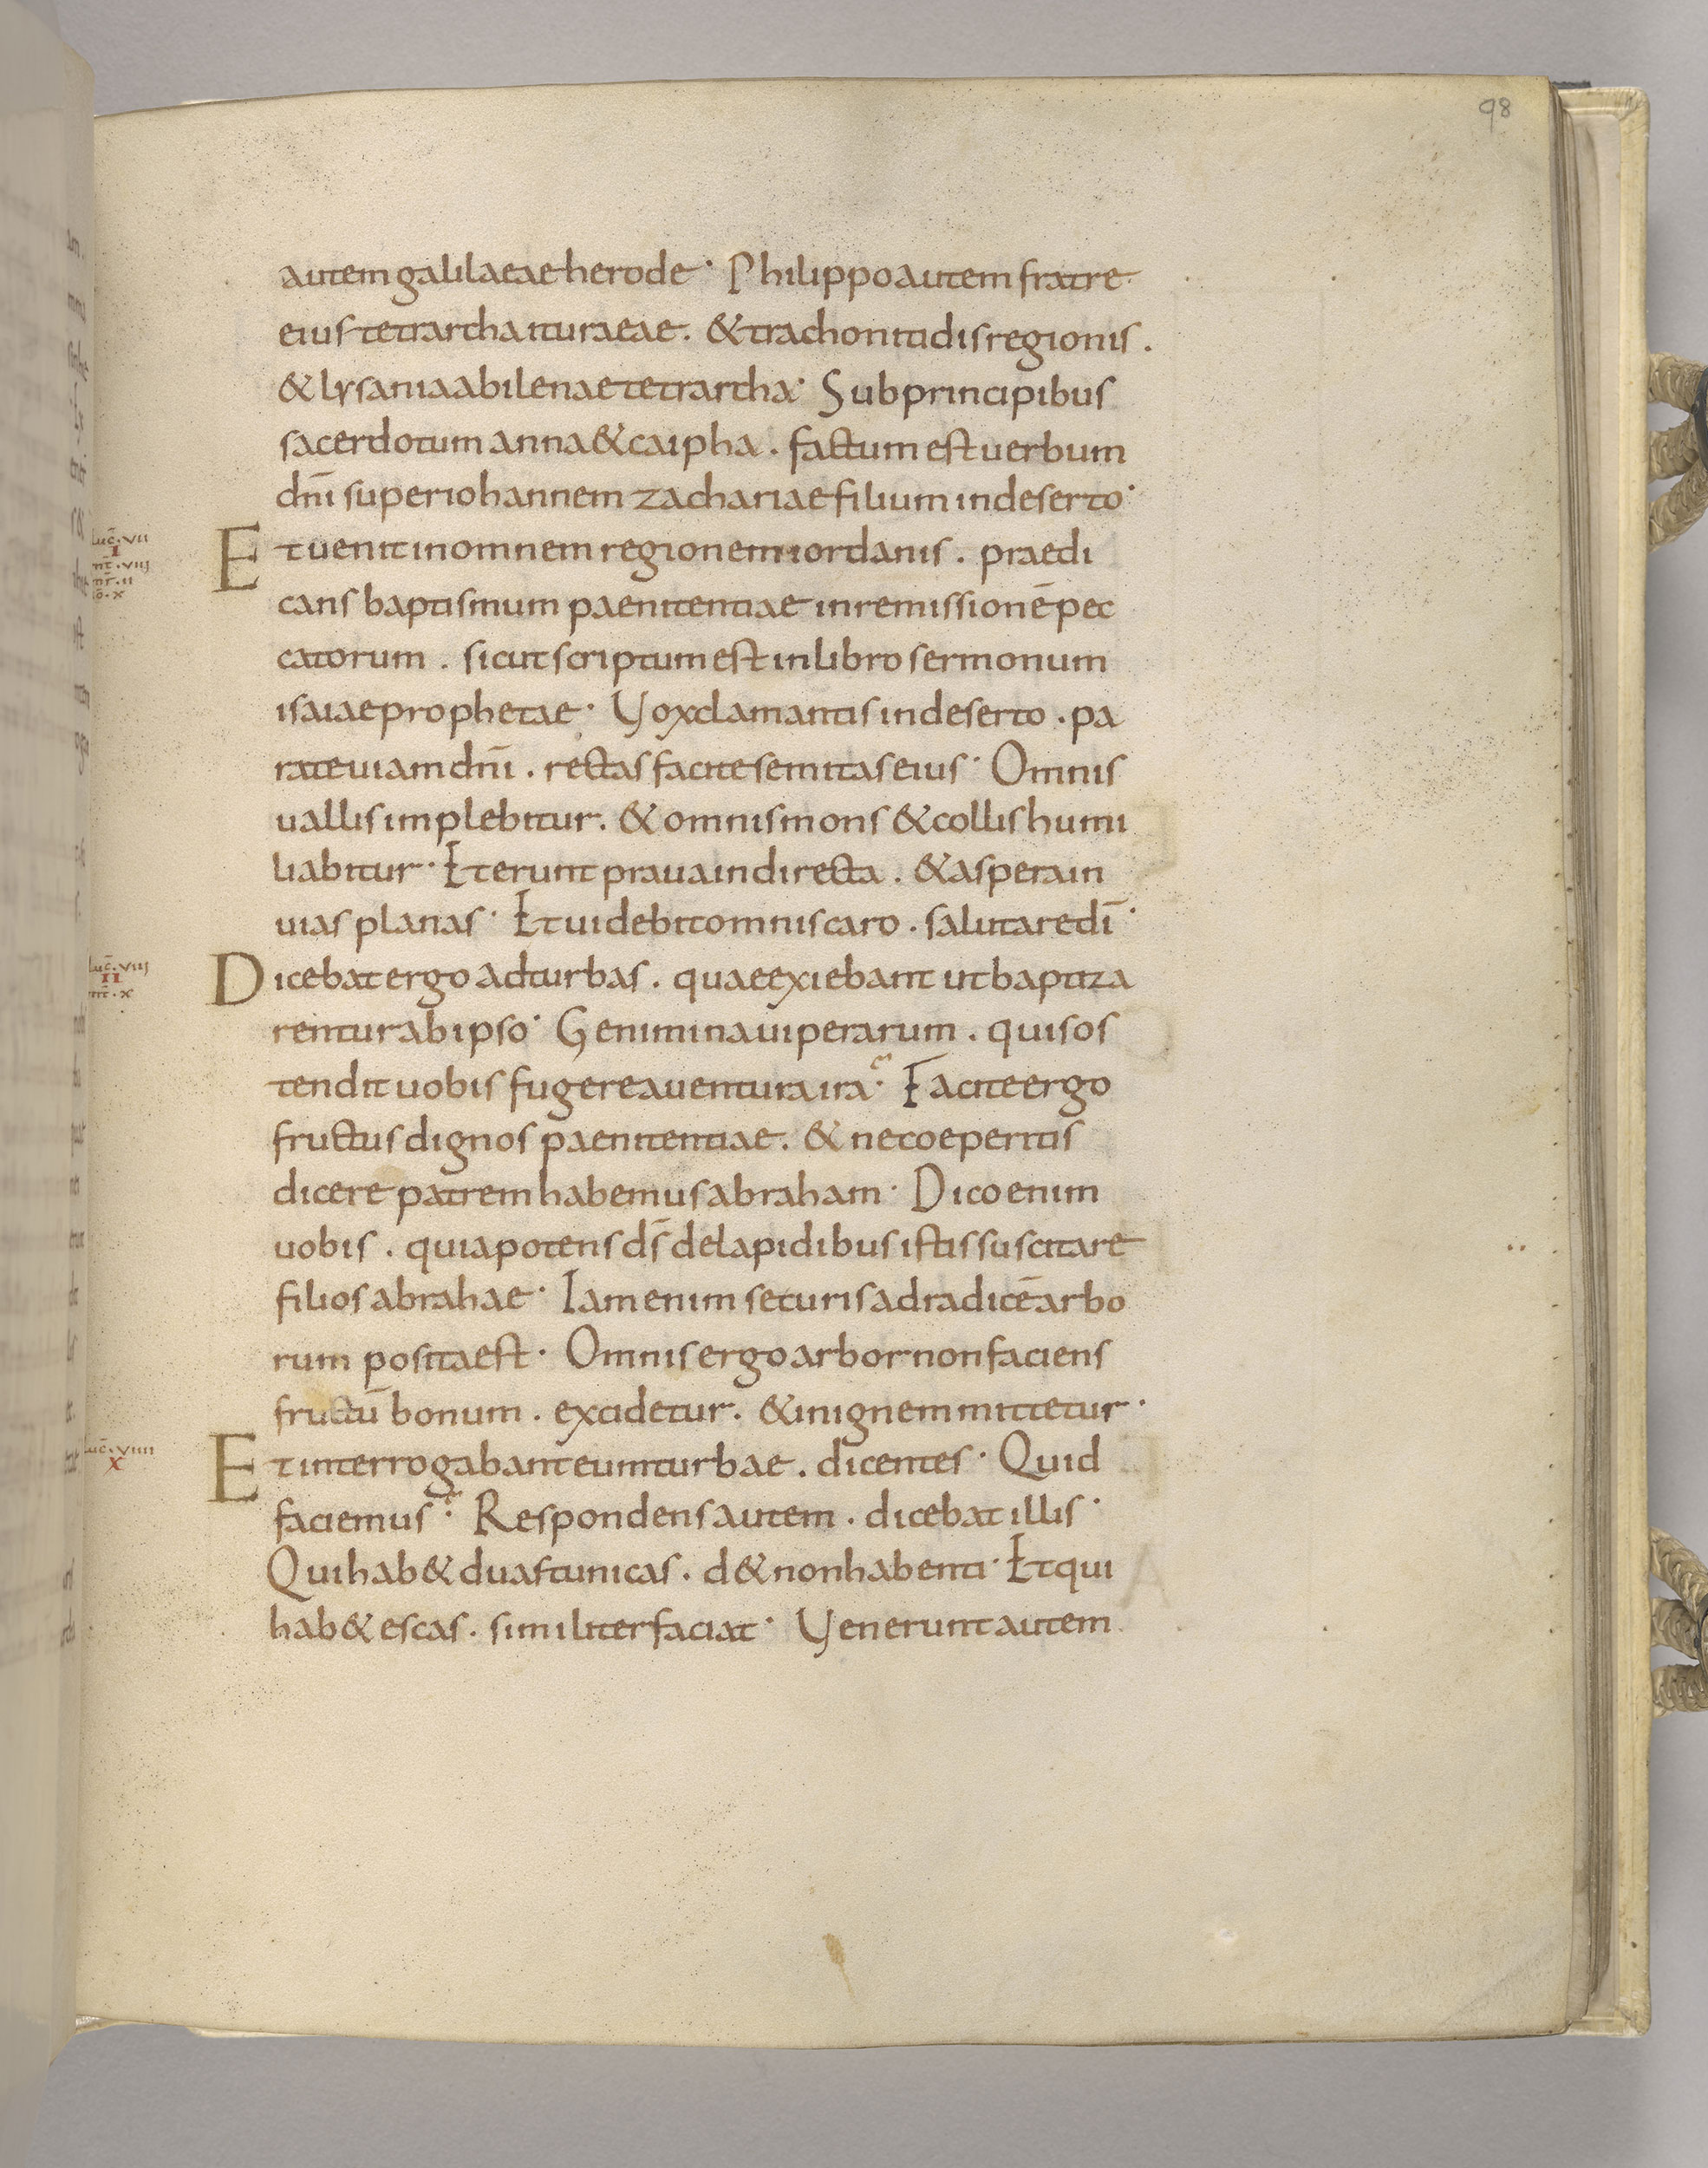 98
autem galilaeae herode · Philippo autem fratre
eius tetrarcha ituraeae . & trachonitidis regionis .
& lysania abilenae tetrarcha · Sub principibus
sacerdotum anna & caipha . factum est uerbum
dnī super iohannem zachariae filium in deserto ·
luc̄ · VII
I
mt̄ · VIII
mr̄ · II
iō · X
Et uenit in omnem regionem iordanis . praedi
cans baptismum paenitentiae in remissionē pec
catorum . sicut scriptum est in libro sermonum
isaiae prophetae · Vox clamantis in deserto . pa
rate uiam dnī . rectas facite semitas eius · Omnis
uallis implebitur . & omnis mons & collis humi
liabitur · Et erunt praua in directa . & aspera in
uias planas · Et uidebit omnis caro . salutare dī ·
luc̄ · VIII
II
mt̄ · X
Dicebat ergo ad turbas . quae exiebant ut baptiza
rentur ab ipso · Genimina uiperarum . quis os
tendit uobis fugere a uentura ira · Facite ergo
fructus dignos paenitentiae . & ne coeperitis
dicere patrem habemus abraham · Dico enim
uobis . quia potens ds̄ de lapidibus istis suscitare
filios abrahae · Iam enim securis ad radicē arbo
rum posita est · Omnis ergo arbor non faciens
fructū bonum . excidetur . & in ignem mittetur ·
luc̄ · VIIII
X
Et interrogabant eum turbae . dicentes · Quid
faciemus · Respondens autem . dicebat illis ·
Qui hab& duas tunicas . d& non habenti · Et qui
hab& escas . similiter faciat · Venerunt autem